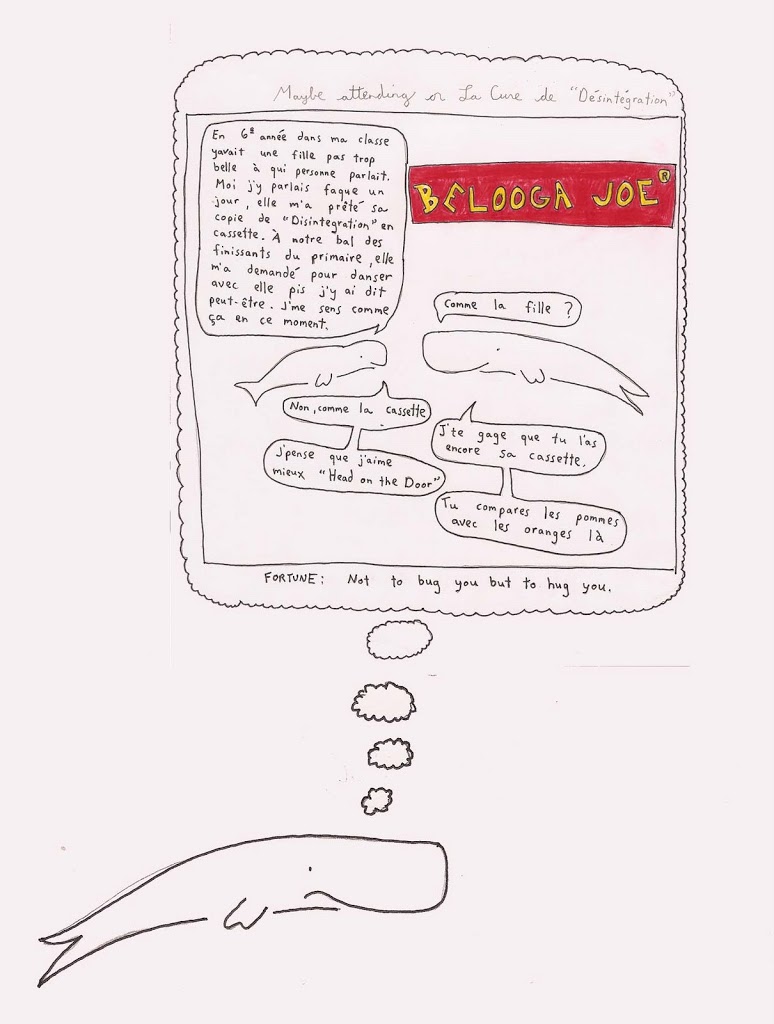 Maybe attending or La Cure de "Désintégration"
En 6e année dans ma classe
yavait une fille pas trop
belle à qui personne parlait.
Moi j'y parlais faque un
jour, elle m'a prêté sa
copie de "Disintegration" en
cassette. À notre bal des
finissants du primaire, elle
m'a demandé pour danser
avec elle pis j'y ai dit
peut-être. J'me sens comme
ça en ce moment.
BELOOGA JOE®
Comme la fille ?
Non, comme la cassette
J'pense que j'aime
mieux "Head on the Door"
J'te gage que tu l'as
encore sa cassette.
Tu compares les pommes
avec les oranges là
FORTUNE: Not to bug you but to hug you.